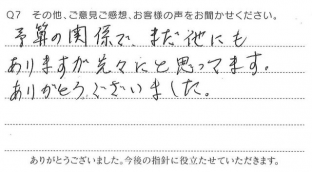 Q7 その他、ご意見ご感想、お客様の声をお聞かせください。
予算の関係で、まだ他にも
ありますが先々にと思ってます。
ありがとうございました。
ありがとうございました。今後の指針に役立たせていただきます。